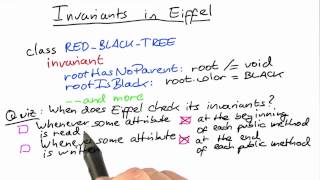 Invariants in Eiffel
class RED-BLACK-TREE
invariant
rootHasNoParent: root /= void
rootIsBlack: root.color = BLACK
--and more
Quiz: When does Eiffel check its invariants?
Whenever some attribute is read
at the beginning of each public method
Whenever some attribute is written
at the end of each public method